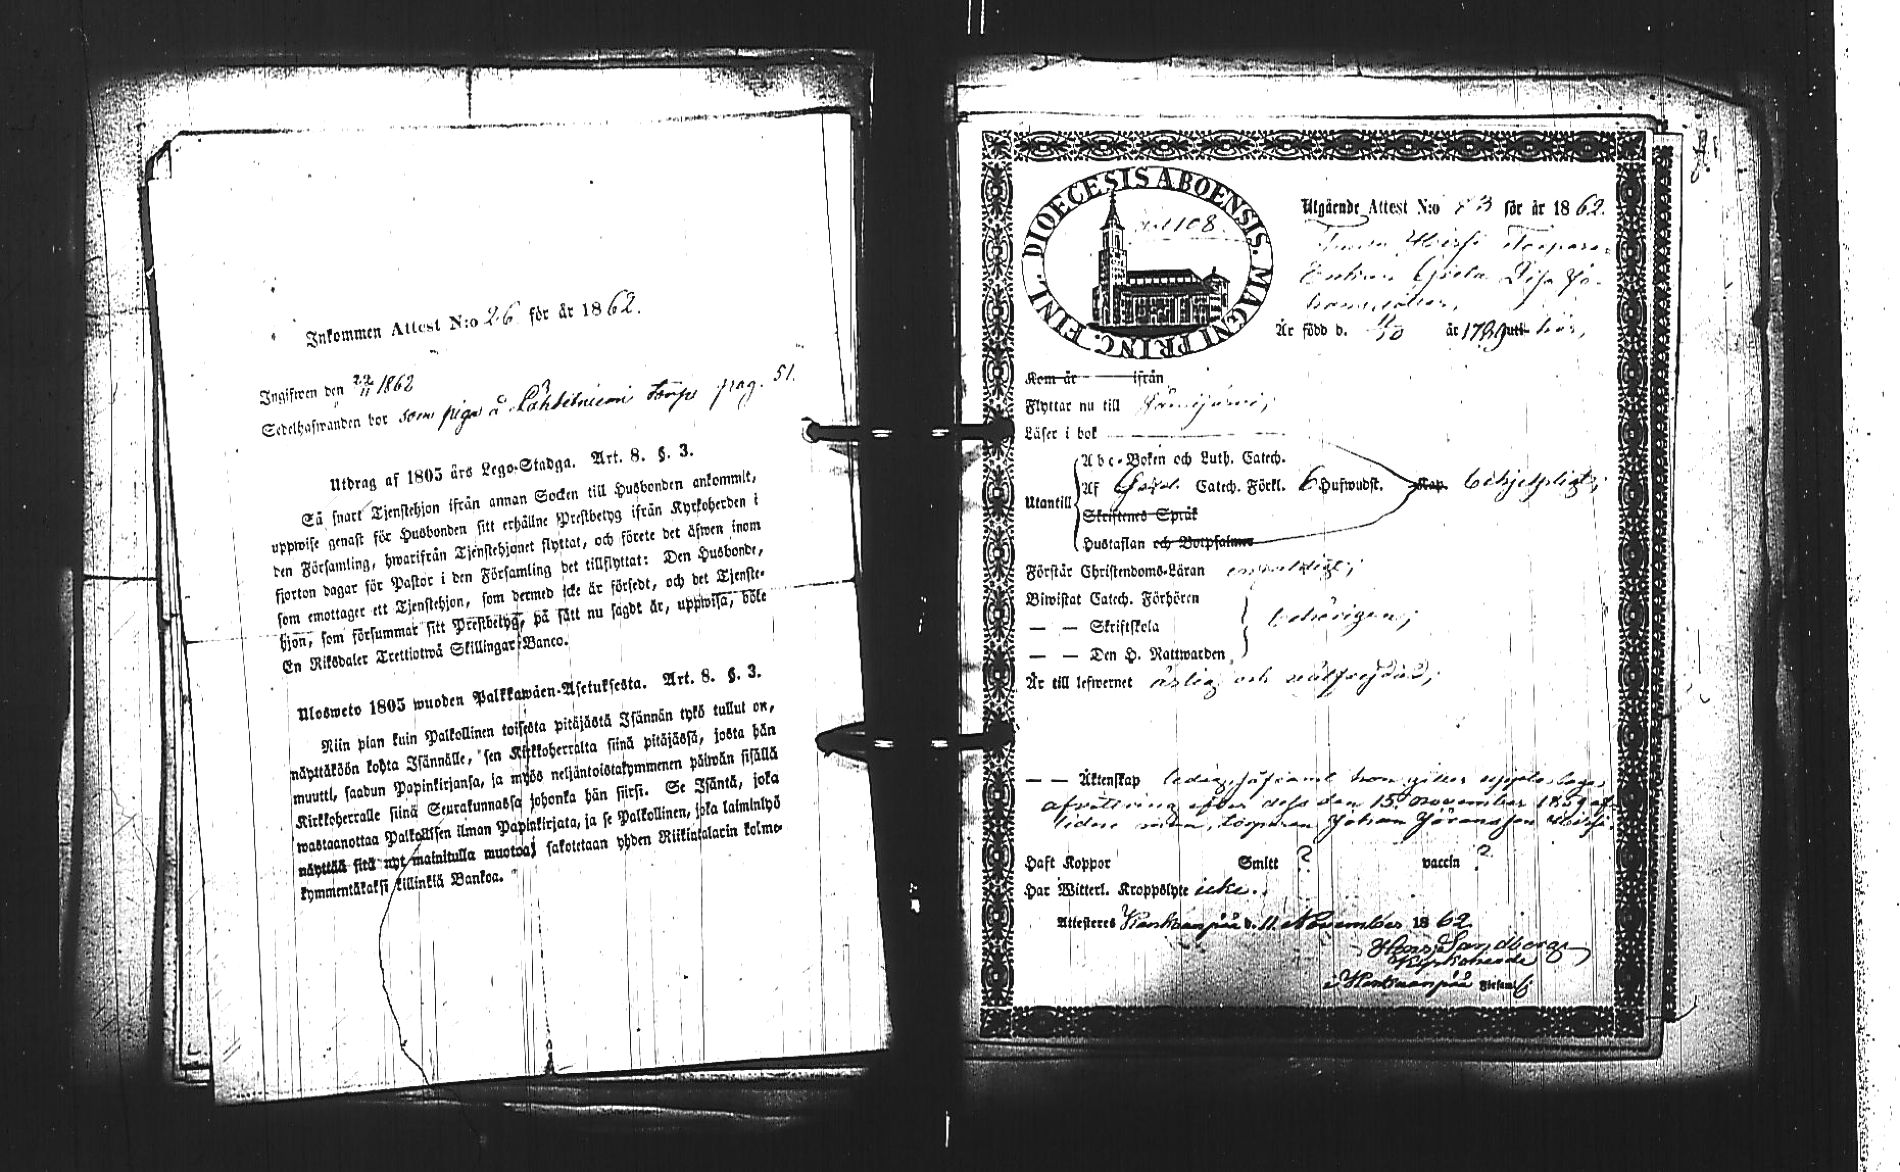 Inkommen Attest N:o 26 för år 1862.
Ingifwen den 22/11 1862
Sedelhafwanden bor som piga å torp pag. 51.
Utdrag af 1805 års Lego-Stadga. Art. 8. §. 3.
Så snart Tjenstehjon ifrån annan Socken till Husbonden ankommit,
uppwise genast för Husbonden sitt erhållne Prestbetyg ifrån Kyrkoherden i
den Församling, hwarifrån Tjenstehjonet flyttat, och förete det äfwen inom
fjorton dagar för Pastor i den Församling det tillflyttat: Den Husbonde,
som emottager ett Tjenstehjon, som dermed icke är försedt, och det Tjenste-
hjon, som försummar sitt Prestbetyg, på sätt nu sagdt är, uppwisa, böte
En Riksdaler Trettiotwå Skillingar Banco.
Ulosweto 1805 wuoden Palkkawäen-Asetuksesta. Art. 8. §. 3.
Niin pian kuin Palkollinen toisesta pitäjästä Isännän tykö tullut on,
näyttäköön kohta Isännälle, sen Kirkkoherralta siinä pitäjässä, josta hän
muutti, saadun Papinkirjansa, ja myös neljäntoistakymmenen päiwän sisällä
Kirkkoherralle siinä Seurakunnassa johonka hän siirsi. Se Isäntä, joka
wastaanottaa Palkollisen ilman Papinkirjata, ja se Palkollinen, joka laiminlyö
näyttää sitä nyt mainitulla muotoa, sakotetaan yhden Riikintalarin kolme-
kymmentäkaksi killinkiä Bankoa.
DIOECESIS ABOENSIS. MAGNI PRINC. FINL.
108
Utgående Attest N:o 83 för år 1862.
Enkan Greta Lisa
Är född d. år uti här,
Kom år ifrån
Flyttar nu till Jämijärvi,
Läser i bok
A b c-Boken och Luth. Catech.
Utantill Af Catech. Förkl. 6 Hufwudst. Kap.
Skriftenes Språk
Hustaflan och Botpsalmer
Förstår Christendoms-Läran enfaldigt,
Biwistat Catech. Förhören
— — Skriftskola behörigen,
— — Den H. Nattwarden
Är till lefwernet ärlig och wälfrejdad,
— — Äktenskap ledig, såframt hon gitter upplaglaga
afwittring efter dess den 15 november 1859 af-
lidne man, torparen Johan Göransson
Haft Koppor Smitt ? vaccin ?
Har Witterl. Kroppslyte icke.
Attesteras Kankaanpää d. 11 November 1862.
Sandberg
Kyrkoherde
i Kankaanpää Församl.